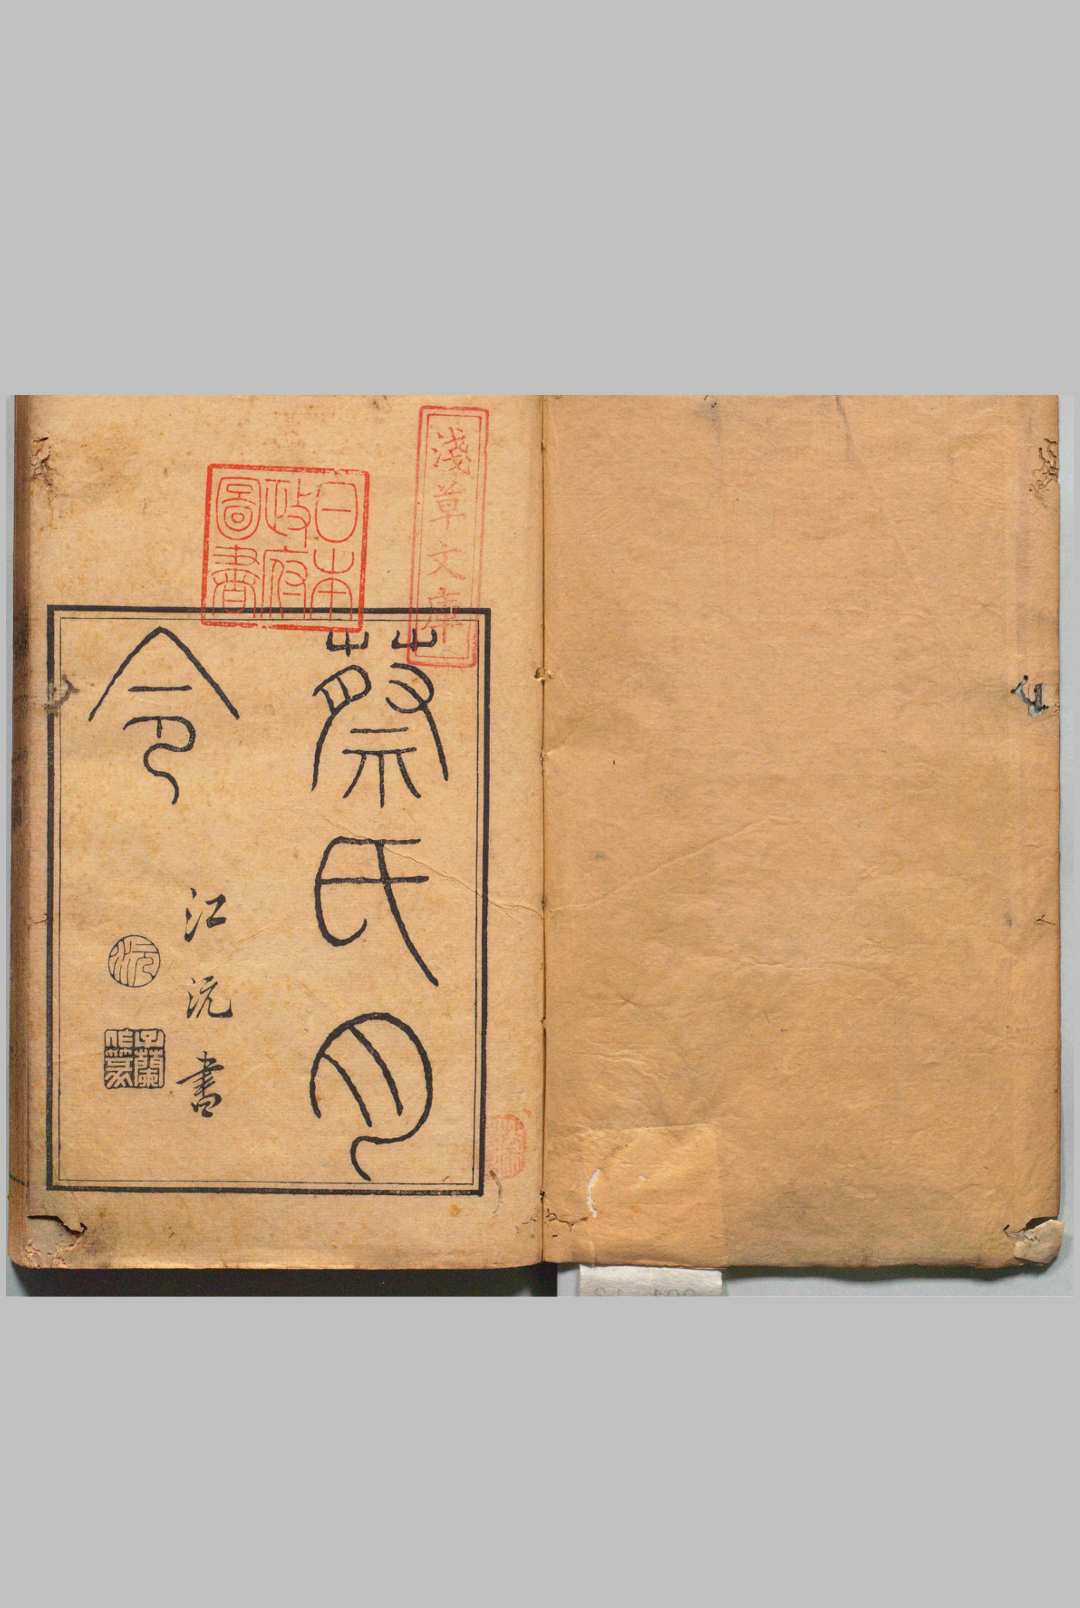 淺草文庫
日本
政府
圖書
蔡氏月
令
江沅書
沅
子蘭
作篆